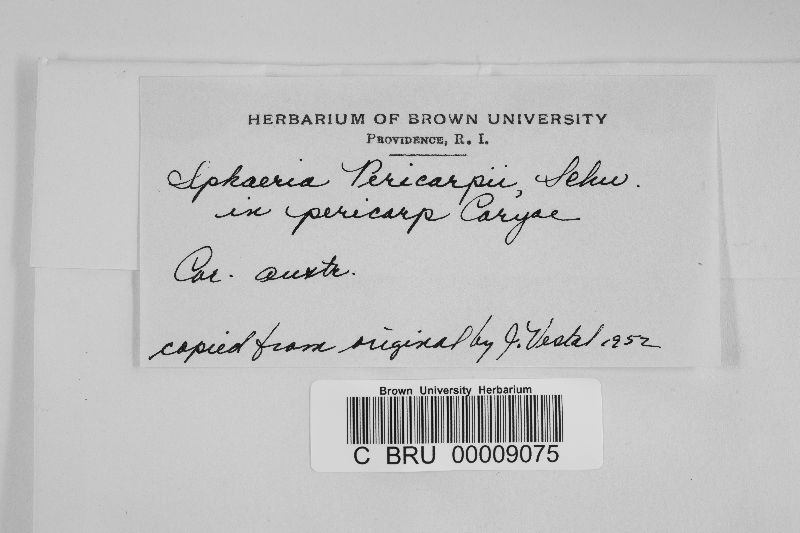 HERBARIUM OF BROWN UNIVERSITY
PROVIDENCE, R. I.
Sphaeria Pericarpii, Schw.
in pericarp Caryae
Car. austr.
copied from original by J. Vestal 1952
Brown University Herbarium
C BRU 00009075